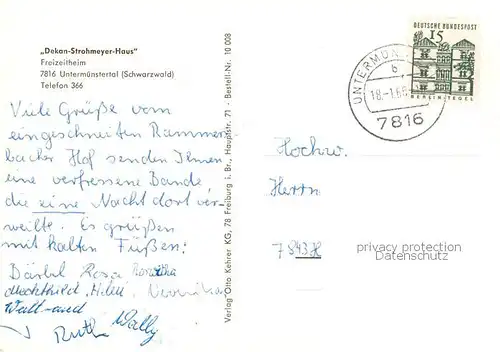 „Dekan-Strohmeyer-Haus"
Freizeitheim
7816 Untermünstertal (Schwarzwald)
Telefon 366
Viele Grüße vom
eingeschneiten Rammers-
bacher Hof senden Ihnen
eine verfressene Bande,
die eine Nacht dort ver-
weilte. Es grüßen
mit kalten Füßen:
Bärbel Rosa
Mechthild, Heidi, Veronika
Walt
Ruth Wally
Verlag Otto Kehrer KG, 78 Freiburg i. Br., Hauptstr. 71 - Bestell-Nr. 10 008
DEUTSCHE BUNDESPOST
15
BERLIN-TEGEL
UNTERMÜN
b
18.-1.66
7816
Hochw.
Herrn
privacy protection
Datenschutz